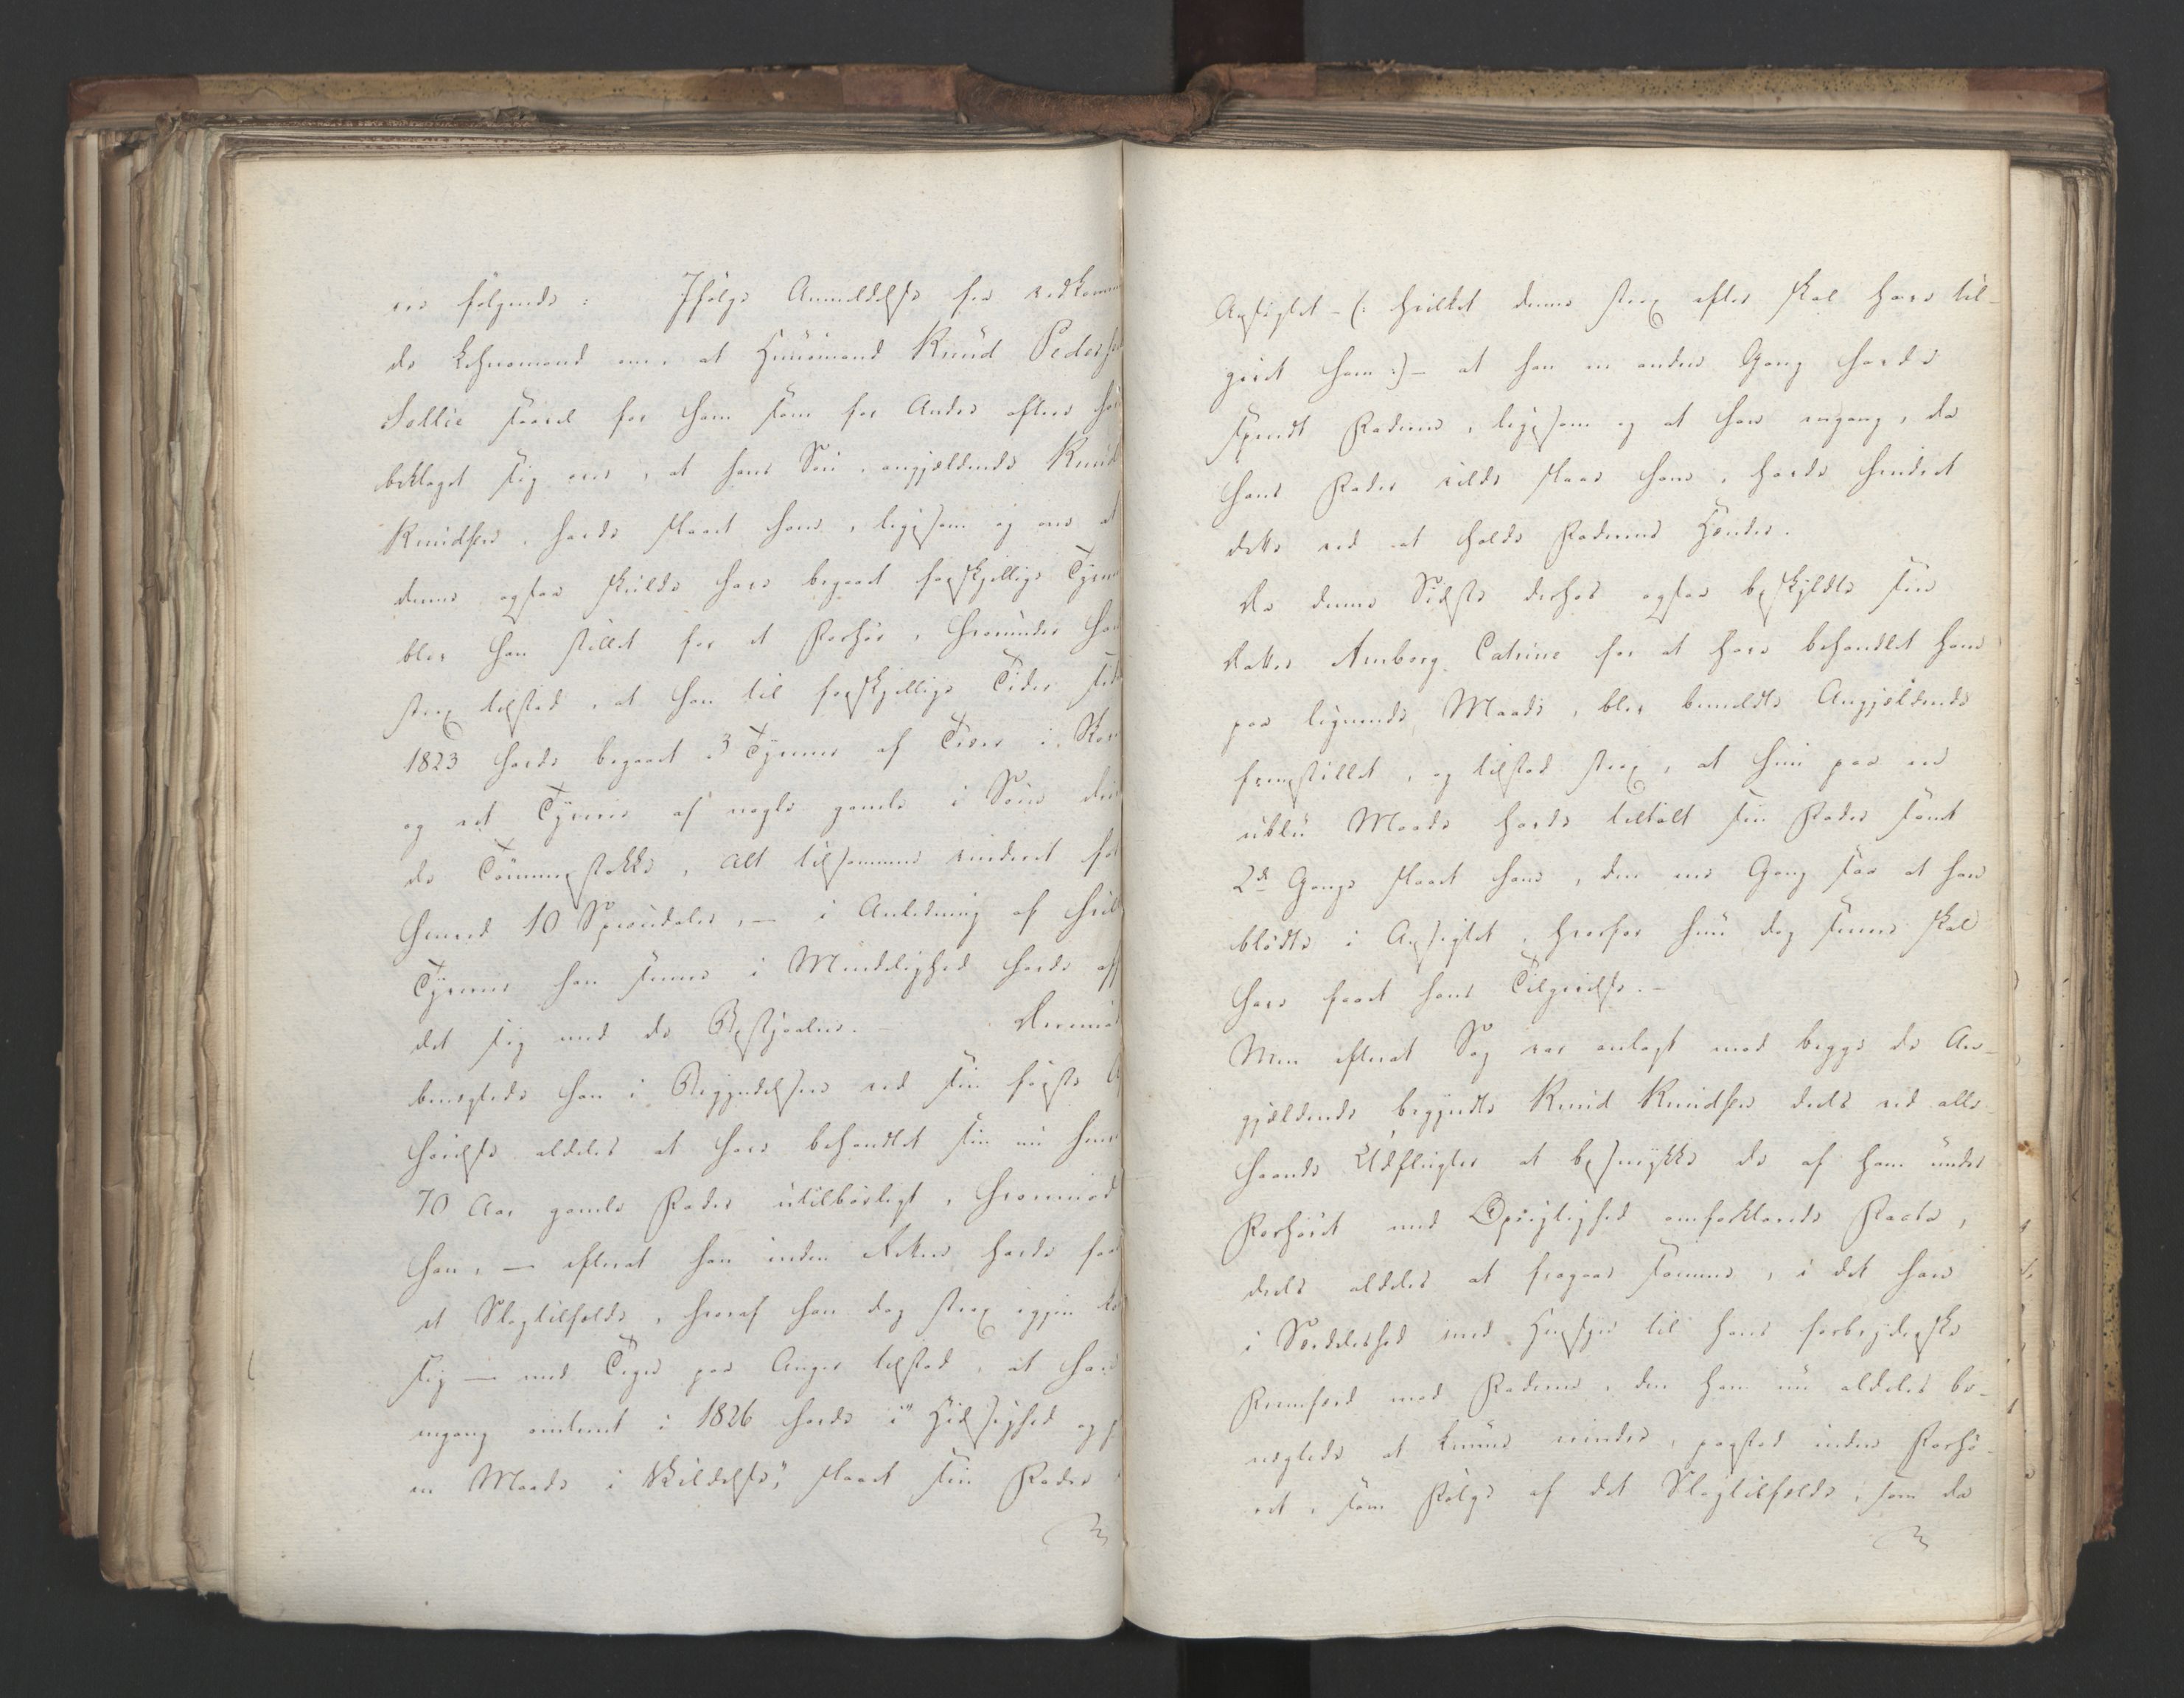 ere følgende: Ifølge Anmeldelse fra vedkommen
de Lehnsmand om, at Huusmand Knud Peders
Sollie saavel for ham som for Andre oftere hav
beklaget sig over, at hans Søn, angjeldende Knud
Knudsen, havde slaaet ham, ligesom og om at
denne ogsaa skulde have begaaet forskjellige Tyve
blev han stillet for et Forhør, hvorunder han
strax tilstod, at han til forskjellige Tider siden
1823 havde begaaet 3 Tyverier af Træer i Sko
og et Tyverie af nogle gamle i Søen
de Tømmerstokke, alt tilsammen vurderet for
henved 10 Speciedaler, — i Anledning af hvil
Tyverier han senere i Mindelighed havde aff
det sig med de Bestjaalne. — Derimod
benegtede han i Begyndelsen ved sin første
hørelse aldeles at have behandlet sin nu hen
70 Aar gamle Fader utilbørligt, hvorimod
han, — efterat han inden Retten havde faa
et Slagtilfelde, hvoraf han dog strax igjen
sig — med Tegn paa Anger tilstod, at han
engang omtrent i 1826 havde i "Hidsighed og p
en Maade i Vildelse", slaaet sin Fader
Ansigtet – (: hvilket denne strax efter skal have til-
givet ham :) – at han en anden Gang havde
spendt Faderen, ligesom og at han engang, da
hans Fader vilde slaae ham, havde hindret
dette ved at holde Faderens Hender.
Da denne Sidste derhos ogsaa beskyldte sin
Datter Amborg Catrine for at have behandlet ham
paa lignende Maade, blev bemeldte Angjeldende
fremstillet, og tilstod strax, at hun paa en
ublu Maade havde tiltalt sin Fader samt
2de Gange slaaet ham, den ene Gang saa at han
blødte i Ansigtet, hvorfor hun dog senere skal
have faaet hans Tilgivelse. –
Men efterat Sag var anlagt mod begge de An-
gjeldende begyndte Knud Knudsen deels ved alle-
haande Udflugter at besmykke de af ham under
Forhøret med Oprigtighed omforklarede Facta,
deels aldeles at fragaae samme, i det han
i Særdeleshed med Hensyn til hans forbryderske
Fremferd mod Faderen, den han nu aldeles be-
negtede at kunne mindes, paastod inden Forhø-
ret, som Følge af det Slagtilfelde, som da